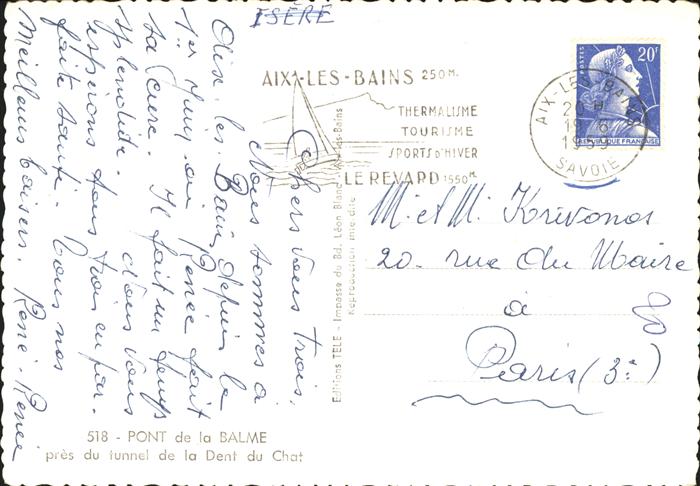 ISÈRE
AIX-LES-BAINS 250 M.
THERMALISME
TOURISME
SPORTS D'HIVER
LE REVARD 1550 M.
POSTES
20F
RÉPUBLIQUE FRANÇAISE
AIX-LES-BAINS
20 H
1959
SAVOIE
Chers vous trois,
Nous sommes à
Aix-les-Bains depuis le
1er Juin où Renée fait
sa cure. Il fait un temps
splendide. Nous vous
espérons tous trois en par-
faite santé. Tous nos
Meilleurs baisers. René. Renée
Editions TELE - Impasse du Bd. Léon Blanc - Aix-les-Bains
Reproduction interdite
M. et M. Krivonos
20. rue du Maire
à
Paris (3e)
518 - PONT de la BALME
près du tunnel de la Dent du Chat